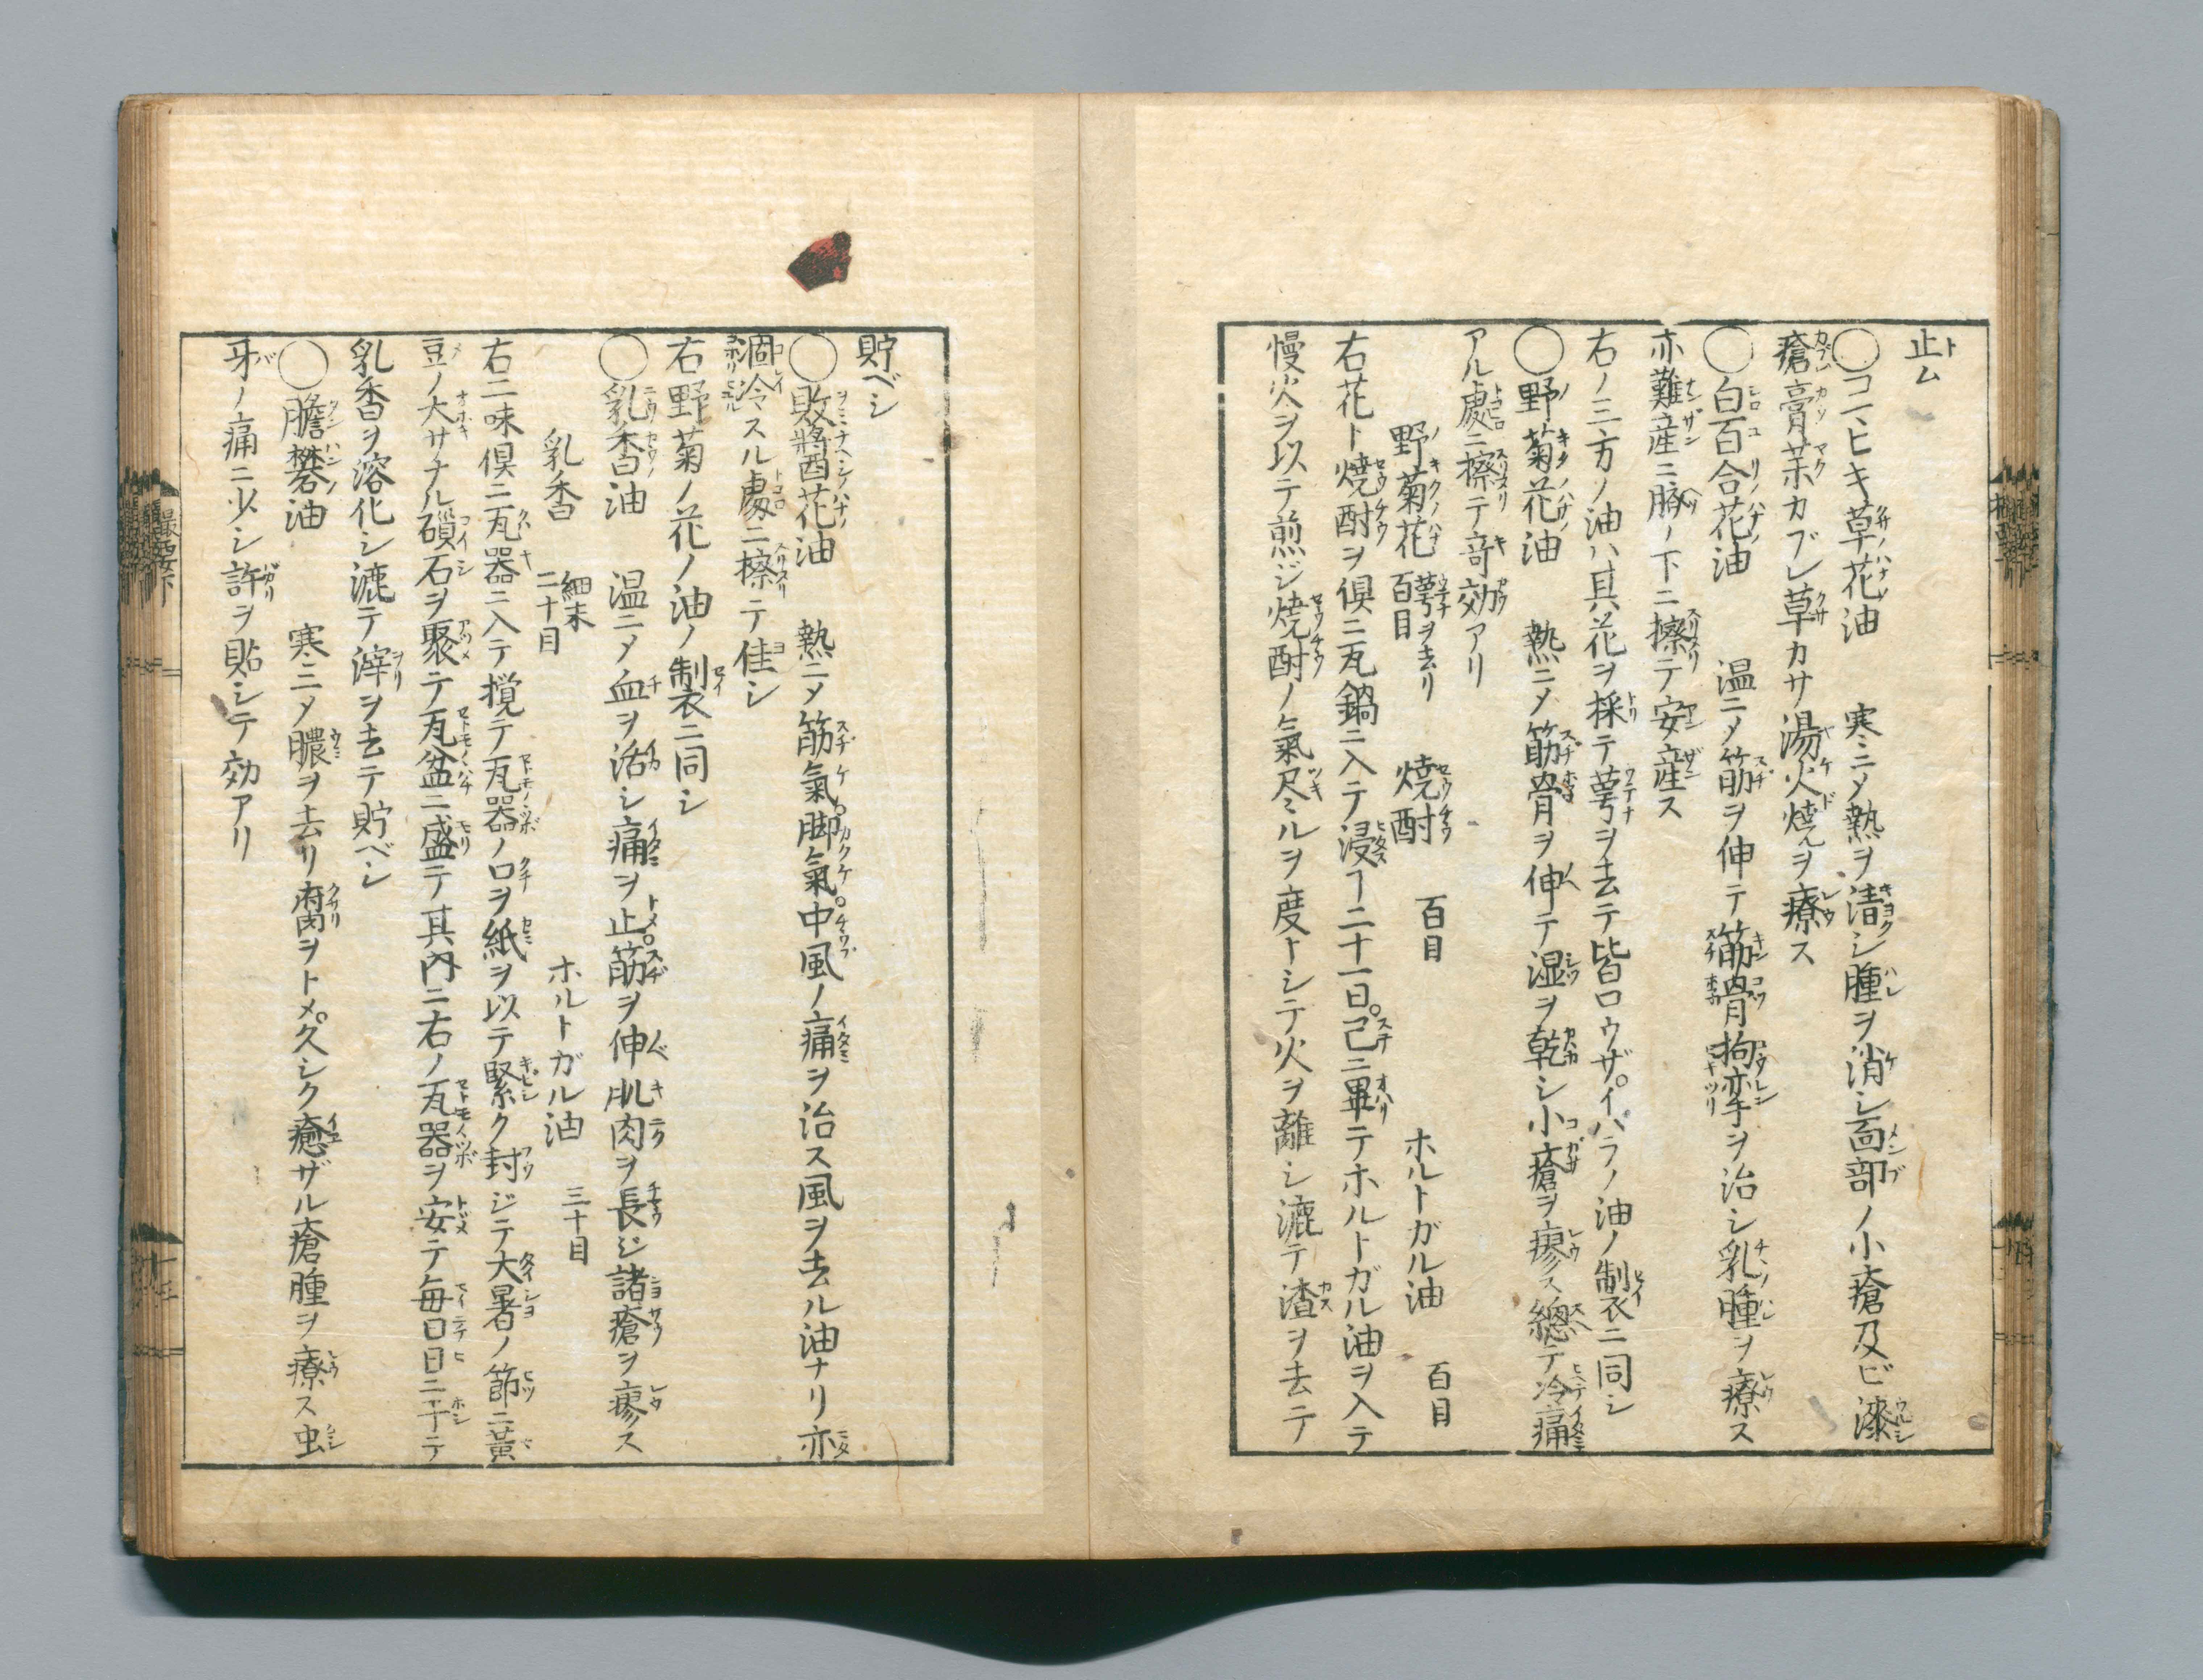 止ム
〇コニヒキ草花油 寒ニメ熱ヲ清シ腫ヲ消シ面部ノ小瘡及ビ漆
瘡膏茱カブレ草カサ湯火焼ヲ療ス
〇白百合花油 温ニメ筋ヲ伸テ筋骨拘攣ヲ治シ乳腫ヲ療ス
亦難産ニ臍ノ下ニ擦テ安産ス
右ノ三方ノ油ハ其花ヲ採テ萼ヲ去テ皆ロウザイバラノ油ノ制衣ニ同シ
〇野菊花油 熱ニメ筋骨ヲ伸テ湿ヲ乾シ小瘡ヲ療ス総テ冷痛
アル処ニ擦テ竒効アリ
野菊花 萼ヲ去リ百目 焼酎 百目 ホルトガル油 百目
右花ト焼酎ヲ倶ニ瓦鍋ニ入テ浸ヿ二十一日。已ニ畢テホルトガル油ヲ入テ
慢火ヲ以テ煎ジ焼酎ノ氣尽ミルヲ度トシテ火ヲ離シ漉テ渣ヲ去テ
貯ベシ
〇敗醤花油 熱ニメ筋氣。脚氣。中風ノ痛ヲ治ス風ヲ去ル油ナリ亦
涸冷スル処ニ擦テ佳シ
右野菊ノ花ノ油ノ制衣ニ同シ
〇乳香油 温ニメ血ヲ活シ痛ヲ止。筋ヲ伸肌肉ヲ長ジ諸瘡ヲ療ス
乳香 細末二十目 ホルトガル油 三十目
右二味倶ニ瓦器ニ入テ撹テ瓦器ノ口ヲ紙ヲ以テ緊ク封ジテ大暑ノ節ニ黄
豆ノ大サナル磒石ヲ聚テ瓦盆ニ盛テ其内ニ右ノ瓦器ヲ安テ毎日日ニ干テ
乳香ヲ溶化シ漉テ滓ヲ去テ貯ベシ
〇膽礬油 寒ニメ膿ヲ去リ腐ヲトメ。久シク癒ザル瘡腫ヲ療ス虫
牙ノ痛ニ少シ許ヲ貼シテ効アリ
最要下